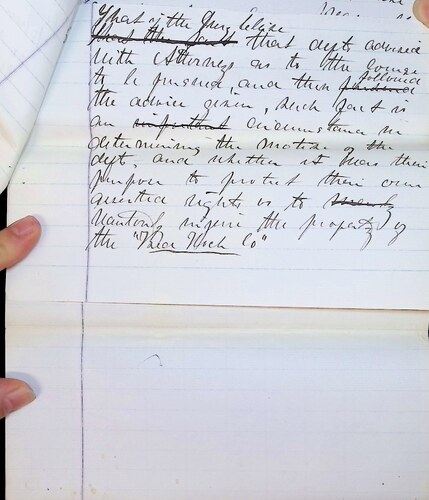 That if the Jury believe
that the fact that defts advised
with Attorneys as to the course
to be pursued, and then followed
the advice given, such fact is
an important circumstance in
determining the motive of the
deft, and whether it was their
purpose to protect their own
asserted rights or to
wantonly injure the property of
the "